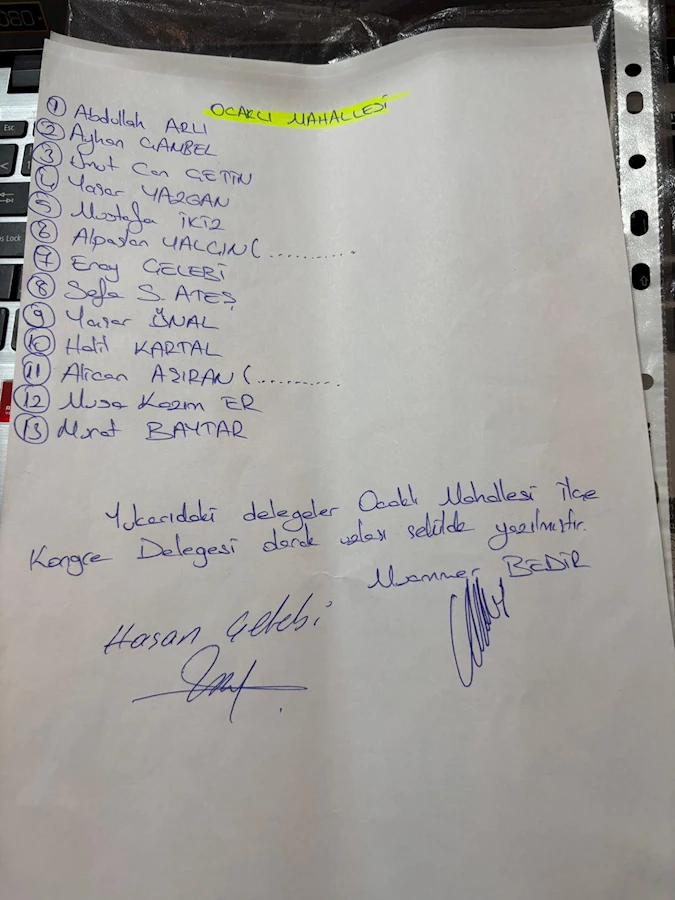 OCAKLI MAHALLESİ
1 Abdullah ARLI
2 Ayhan CANBEL
3 Umut Can ÇETİN
4 Yaşar YAZGAN
5 Mustafa İKİZ
6 Alpaslan YALÇIN (...........
7 Eray ÇELEBİ
8 Sefa S. ATEŞ
9 Yaşar ÖNAL
10 Halil KARTAL
11 Alican ASIRAN (...........
12 Musa Kazım ER
13 Murat BAYTAR
Yukarıdaki delegeler Ocaklı Mahallesi İlçe
Kongre Delegesi olarak şekilde yazılmıştır.
Muammer BEDİR
Hasan Çelebi